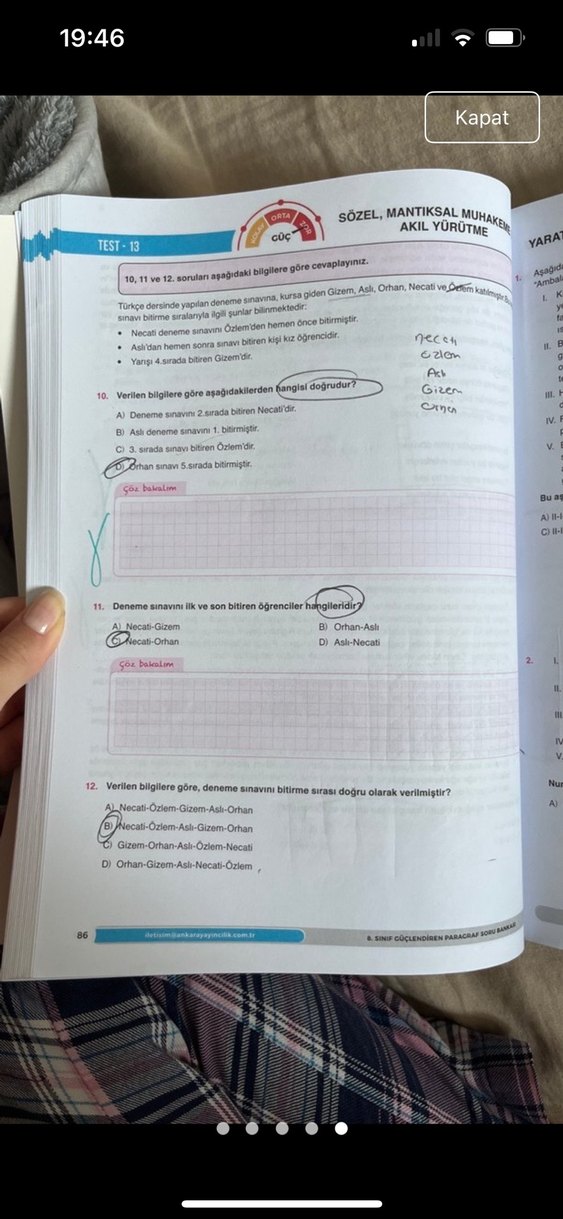 19:46
Kapat
TEST - 13
KOLAY ORTA ZOR
GÜÇ
SÖZEL, MANTIKSAL MUHAKEME
AKIL YÜRÜTME
10, 11 ve 12. soruları aşağıdaki bilgilere göre cevaplayınız.
Türkçe dersinde yapılan deneme sınavına, kursa giden Gizem, Aslı, Orhan, Necati ve Özlem katılmıştır.
sınavı bitirme sıralarıyla ilgili şunlar bilinmektedir:
• Necati deneme sınavını Özlem'den hemen önce bitirmiştir.
• Aslı'dan hemen sonra sınavı bitiren kişi kız öğrencidir.
• Yarışı 4.sırada bitiren Gizem'dir.
Necati
Özlem
Aslı
Gizem
Orhan
10. Verilen bilgilere göre aşağıdakilerden hangisi doğrudur?
A) Deneme sınavını 2.sırada bitiren Necati'dir.
B) Aslı deneme sınavını 1. bitirmiştir.
C) 3. sırada sınavı bitiren Özlem'dir.
D) Orhan sınavı 5.sırada bitirmiştir.
Çöz bakalım
11. Deneme sınavını ilk ve son bitiren öğrenciler hangileridir?
A) Necati-Gizem
B) Orhan-Aslı
C) Necati-Orhan
D) Aslı-Necati
Çöz bakalım
12. Verilen bilgilere göre, deneme sınavını bitirme sırası doğru olarak verilmiştir?
A) Necati-Özlem-Gizem-Aslı-Orhan
B) Necati-Özlem-Aslı-Gizem-Orhan
C) Gizem-Orhan-Aslı-Özlem-Necati
D) Orhan-Gizem-Aslı-Necati-Özlem
86
iletisim@ankarayayincilik.com.tr
8. SINIF GÜÇLENDİREN PARAGRAF SORU BANKASI
YARAT
1. Aşağıda
"Ambala
I.
II.
III.
IV.
V.
Bu aş
A) II-I
C) II-I
2. I.
II.
III
IV
V.
Nur
A)